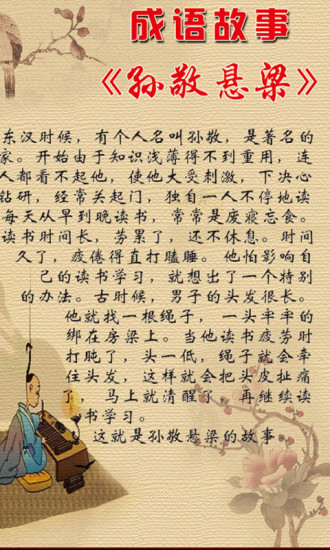 成语故事
《孙敬悬梁》
东汉时候，有个人名叫孙敬，是著名的
家。开始由于知识浅薄得不到重用，连
人都看不起他，使他大受刺激，下决心
钻研，经常关起门，独自一人不停地读
每天从早到晚读书，常常是废寝忘食。
读书时间长，劳累了，还不休息。时间
久了，疲倦得直打瞌睡。他怕影响自
己的读书学习，就想出了一个特别
的办法。古时候，男子的头发很长。
他就找一根绳子，一头牢牢的
绑在房梁上。当他读书疲劳时
打盹了，头一低，绳子就会牵
住头发，这样就会把头皮扯痛
了，马上就清醒了，再继续读
书学习。
这就是孙敬悬梁的故事。